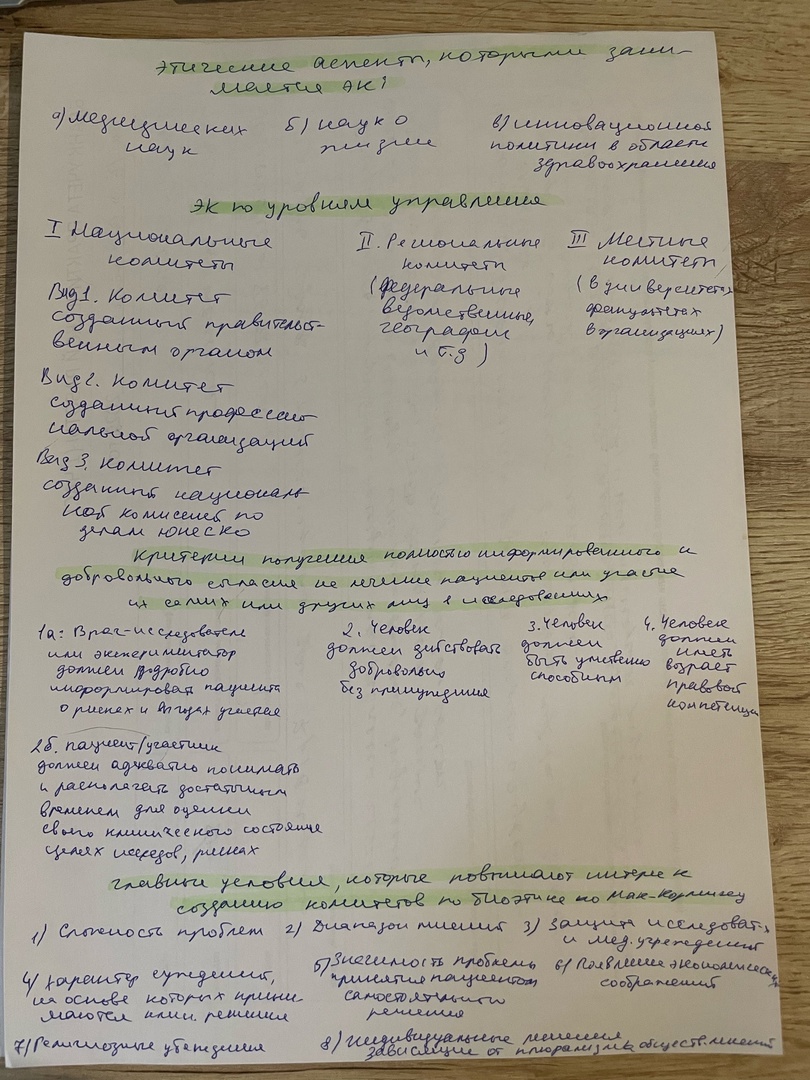 этические аспекты, которыми зани-
мается ЭК:
а) медицинских
наук
б) наук о
жизни
в) инновационной
политики в области
здравоохранения
ЭК по уровням управления
I Национальные
комитеты
Вид 1. Комитет
созданный правительст-
венным органом
Вид 2. Комитет
созданный професcио
нальной организацией
Вид 3. Комитет
созданный националь
ной комиссией по
делам юнеско
II. Региональные
комитеты
(федеральные
ведомственные,
географич
и т.д)
III Местные
комитеты
(в университетах
факультетах
в организациях)
критерии получения полностью информированного и
добровольного согласия на лечение пациентов или участие
их самих или других лиц в исследованиях
1а: Врач-исследователь
или экспериментатор
должен подробно
информировать пациента
о рисках и выгодах участия
2. Человек
должен действовать
добровольно
без принуждения
3. Человек
должен
быть умственно
способным
4. Человек
должен
иметь
возраст
правовой
компетенции
2б. пациент/участник
должен адекватно понимать
и располагать достаточным
временем для оценки
своего клинического состояние
целях исследов, рисках
главные условия, которые повышают интерес к
созданию комитетов по биоэтике по Мак-Кормику
1) Сложность проблем 2) Диапазон мнений 3) Защита исследоват.
и мед. учреждений
4) характер суждений,
на основе которых прини-
маются клин. решения
5) Значимость проблемы
принятия пациентом
самостоятельного
решения
6) Появление экономических
соображений
7) Религиозные убеждения
8) Индивидуальные решения
зависящие от плюрализма обществ. мнений